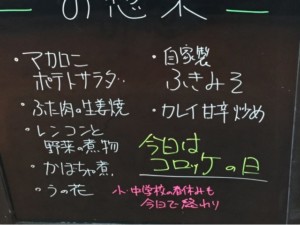 の惣菜
・マカロニ
ポテトサラダ
・ぶた肉の生姜焼
・レンコンと
野菜の煮物
・かぼちゃ煮
・うの花
・自家製
ふきみそ
・カレイ甘辛炒め
今日は
コロッケの日
小・中学校の春休みも
今日で終わり